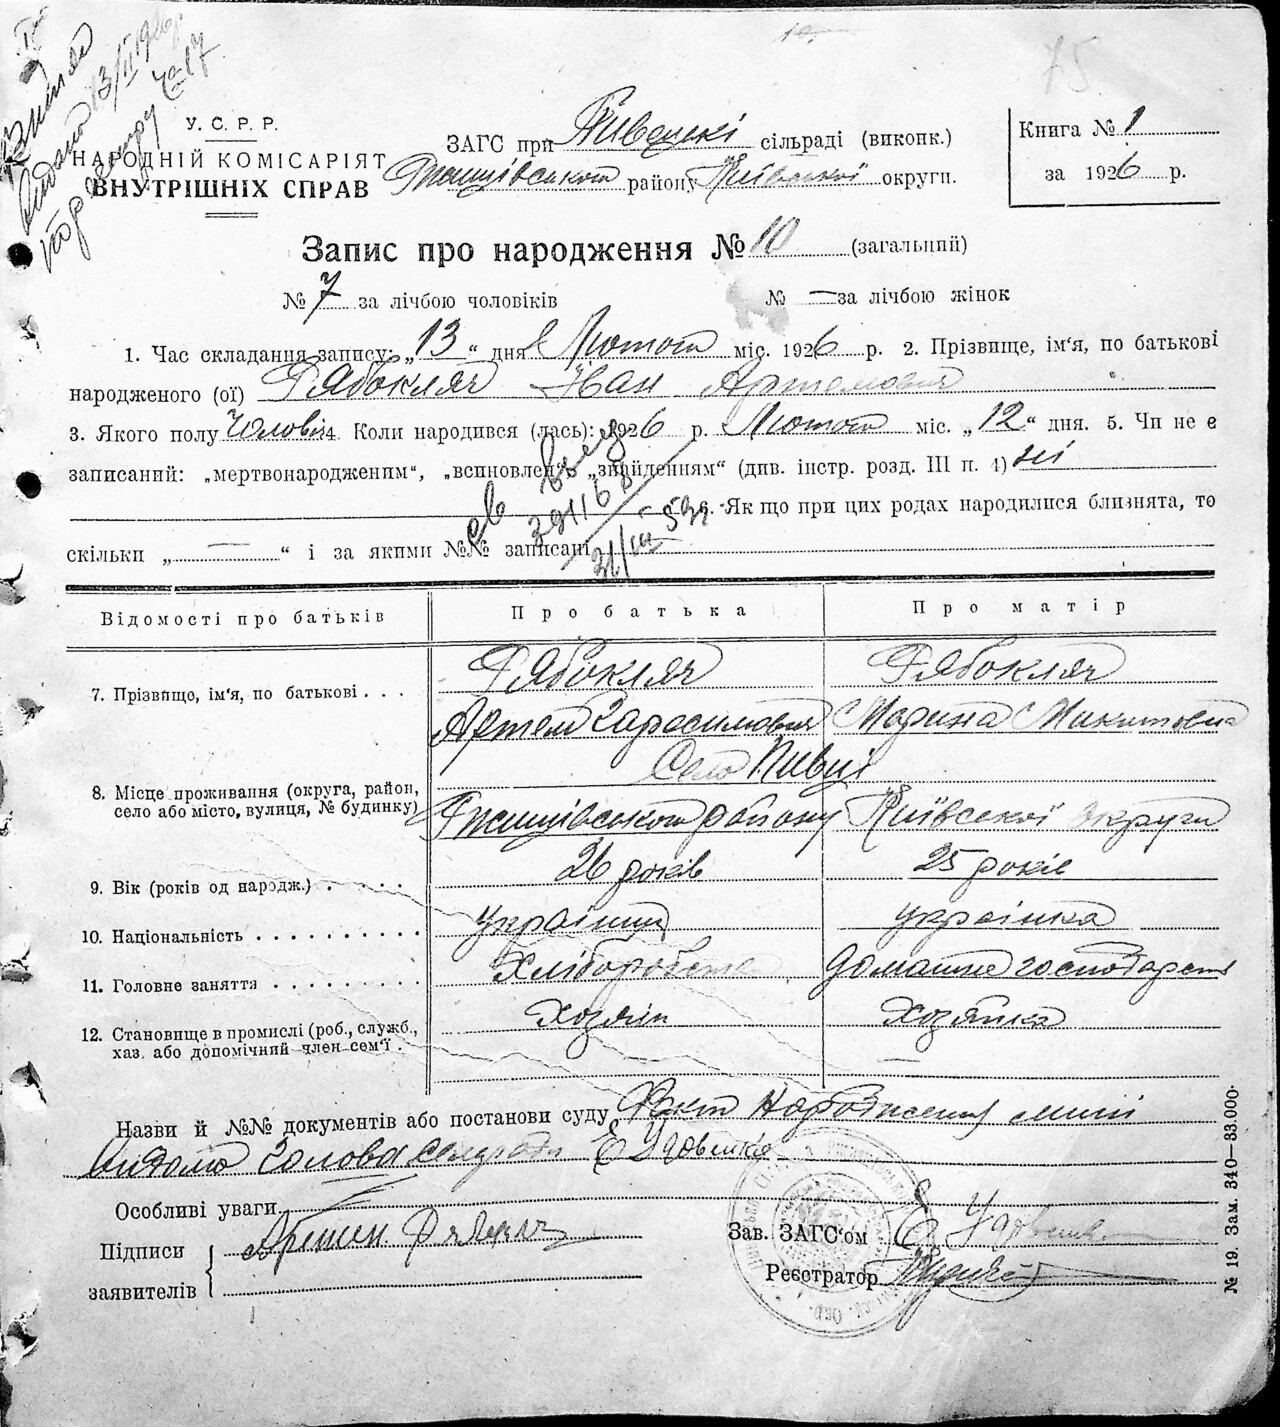 75.
Видано 13/II 1926 р.
У. С. Р. Р.
НАРОДНІЙ КОМІСАРІЯТ
ВНУТРІШНІХ СПРАВ
ЗАГС при сільраді (виконк.)
Ржищівського району Київської округи.
Книга № 1
за 1926 р.
Запис про народження № 10 (загальний)
№ 7 за лічбою чоловіків № — за лічбою жінок
1. Час складання запису: „13“ дня Лютого міс. 1926 р. 2. Прізвище, ім'я, по батькові
народженого (ої) Рябокляч Іван Артемович
3. Якого полу Чоловіч 4. Коли народився (лась): 1926 р. Лютого міс. „12“ дня. 5. Чи не є
записаний: „мертвонародженим“, „всиновлен“, „знайденням“ (див. інстр. розд. III п. 4) ні
6. Як що при цих родах народилися близнята, то
скільки „—“ і за якими №№ записані
Відомості про батьків Про батька Про матір
7. Прізвище, ім'я, по батькові . . . Рябокляч Рябокляч
Артем Гарасимович Марина Микитовна
Село Пивці
8. Місце проживання (округа, район,
село або місто, вулиця, № будинку) Ржищівського району Київської округи
9. Вік (років од народж.) . . . . 26 років 25 років
10. Національність . . . . . . . . . . українець українка
11. Головне заняття . . . . . . . . . Хліборобство домашнє господарств
12. Становище в промислі (роб., служб.,
хаз. або допомічний член сем'ї . Хозяін Хозяйка
Назви й №№ документів або постанови суду Факт народження мині
відомо Голова сельради Є Удовенко
Особливі уваги
Підписи
заявителів Артем Рябокляч
Зав. ЗАГС'ом Є Удовенко
Реєстратор
№ 19. Зам. 340—33.000.